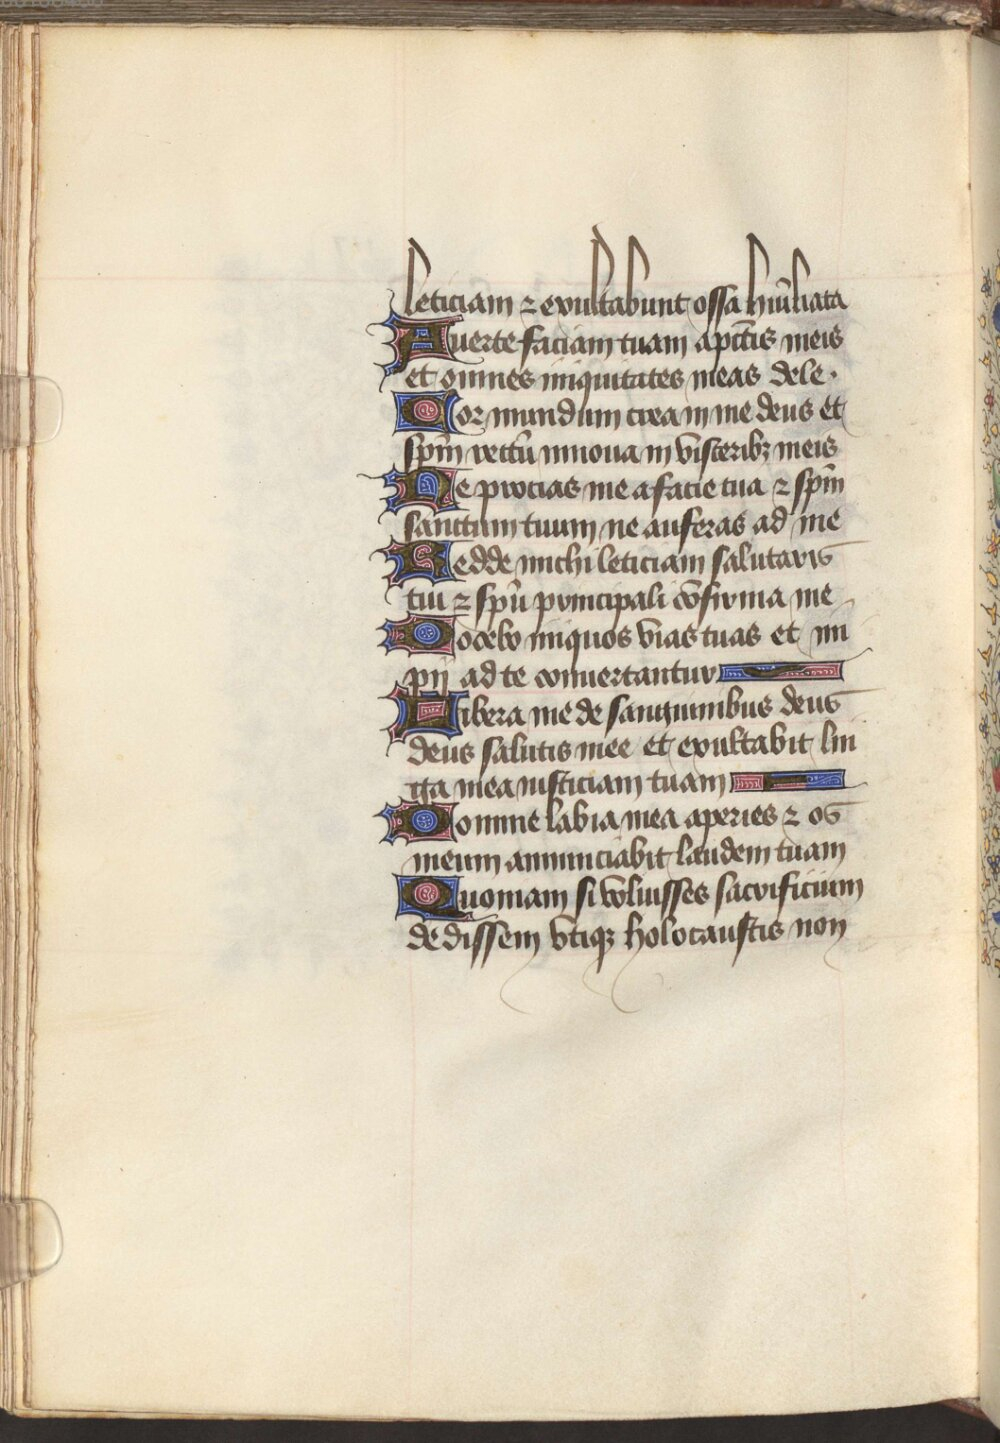 leticiam ⁊ exultabunt ossa hūiliata
Auerte faciam tuam a pctīs meis
et omnes iniquitates meas dele.
Cor mundum crea in me deus et
spm̄ rectū innoua in visceribꝫ meis
Ne proicias me a facie tua ⁊ spm̄
sanctum tuum ne auferas ad me
Redde michi leticiam salutaris
tui ⁊ spū principali cōfirma me
Docebo iniquos vias tuas et im
pij ad te conuertantur
Libera me de sanguinibus deus
deus salutis mee et exultabit lin
gua mea iusticiam tuam
Domine labia mea aperies ⁊ os
meum annunciabit laudem tuam
Quoniam si voluisses sacrificium
dedissem vtiqꝫ holocaustis non